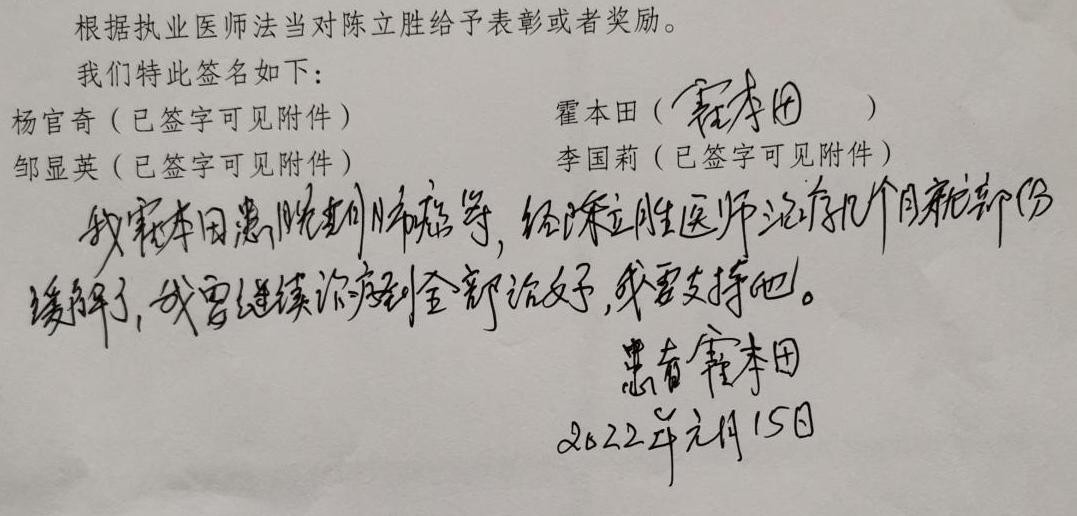 根据执业医师法当对陈立胜给予表彰或者奖励。
我们特此签名如下：
杨官奇（已签字可见附件） 霍本田（霍本田）
邹显英（已签字可见附件） 李国莉（已签字可见附件）
我霍本田患肺病等，经陈立胜医师治疗几个月就部份
缓解了，我要继续治疗到全部治好，我要支持他。
患者霍本田
2022年元月15日